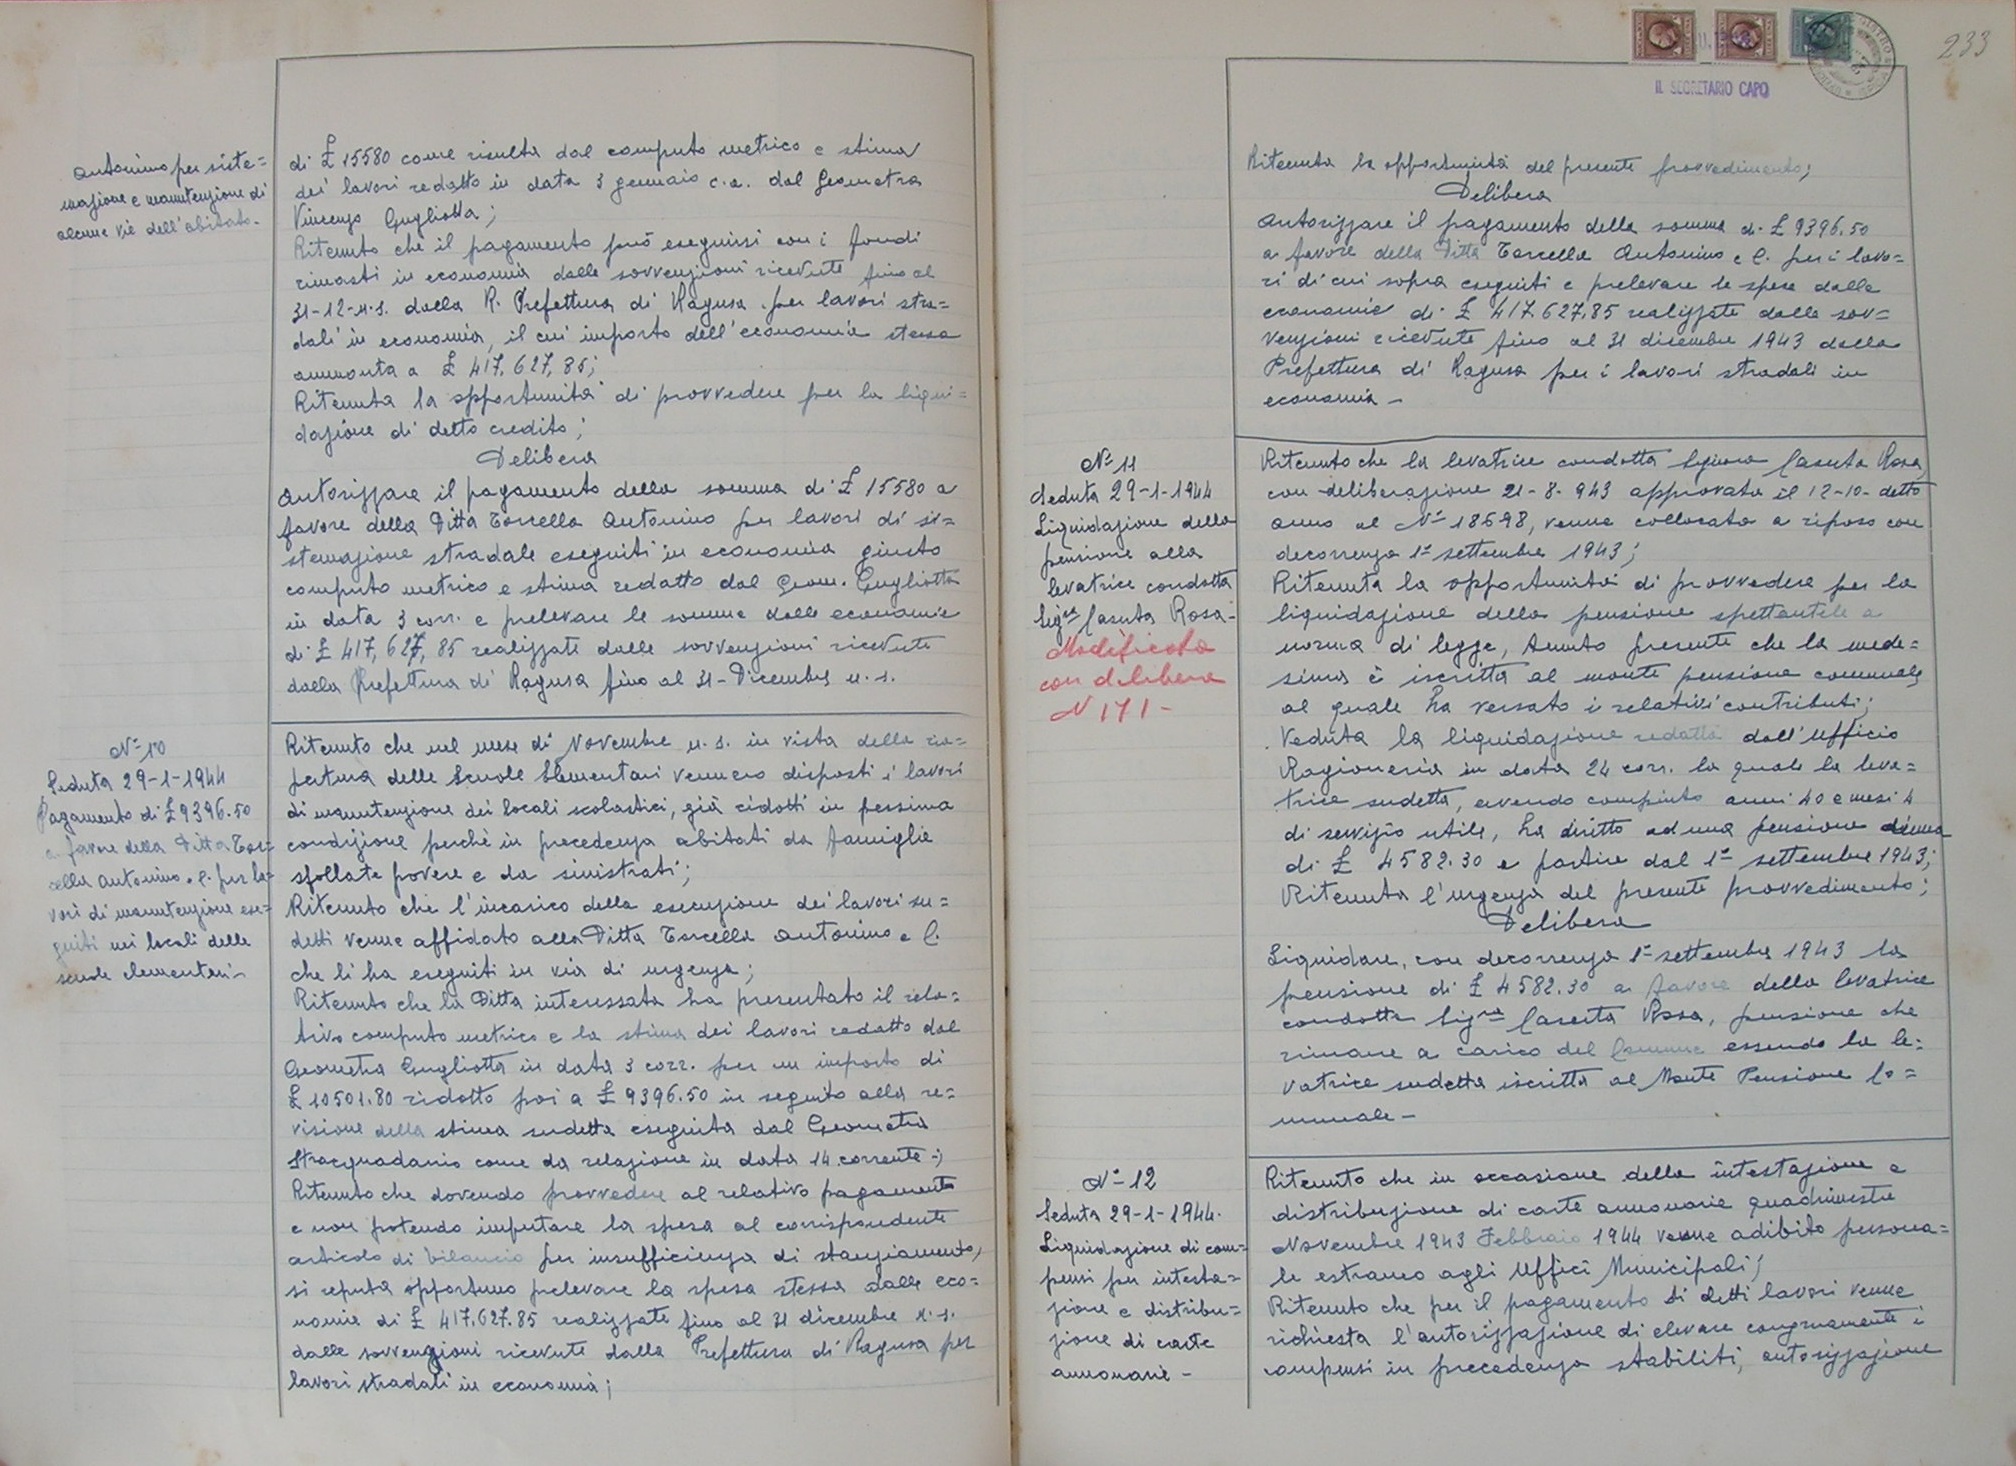 Antonino per siste=
mazione e manutenzione di
alcune vie dell'abitato.
di £ 15580 come risulta dal computo metrico e stima
dei lavori redatto in data 3 gennaio c.a. dal Geometra
Vincenzo Gugliotta;
Ritenuto che il pagamento può eseguirsi con i fondi
rimasti in economia dalle sovvenzioni ricevute fino al
31-12-u.s. dalla R. Prefettura di Ragusa per lavori stra=
dali in economia, il cui importo dell'economia stessa
ammonta a £ 417.627,85;
Ritenuta la opportunità di provvedere per la liqui=
dazione di detto credito;
Delibera
Autorizzare il pagamento della somma di £ 15580 a
favore della Ditta Torcella Antonino per lavori di si=
stemazione stradale eseguiti in economia giusto
computo metrico e stima redatto dal Geom. Gugliotta
in data 3 corr. e prelevare le somme dalle economie
di £ 417,627,85 realizzate dalle sovvenzioni ricevute
dalla Prefettura di Ragusa fino al 31-Dicembre u.s.
N° 10
Seduta 29-1-1944
Pagamento di £ 9396.50
a favore della Ditta Tor=
cella Antonino e C. per la=
vori di manutenzione ese=
guiti nei locali delle
scuole elementari-
Ritenuto che nel mese di Novembre u.s. in vista della ria=
pertura delle Scuole Elementari vennero disposti i lavori
di manutenzione dei locali scolastici, già ridotti in pessima
condizione perchè in precedenza abitati da famiglie
sfollate povere e da sinistrati;
Ritenuto che l'incarico della esecuzione dei lavori su=
detti venne affidato alla Ditta Torcella Antonino e C.
che li ha eseguiti in via di urgenza;
Ritenuto che la Ditta interessata ha presentato il rela=
tivo computo metrico e la stima dei lavori redatto dal
Geometra Gugliotta in data 3 corr. per un importo di
£ 10501.80 ridotto poi a £ 9396.50 in seguito alla re=
visione della stima sudetta eseguita dal Geometra
Stracquadanio come da relazione in data 14 corrente-;
Ritenuto che dovendo provvedere al relativo pagamento
e non potendo imputare la spesa al corrispondente
articolo di bilancio per insufficienza di stanziamento,
si reputa opportuno prelevare la spesa stessa dalle eco=
nomie di £ 417.627.85 realizzate fino al 31 dicembre u.s.
dalle sovvenzioni ricevute dalla Prefettura di Ragusa per
lavori stradali in economia;
233
IL SEGRETARIO CAPO
Ritenuta la opportunità del presente provvedimento;
Delibera
Autorizzare il pagamento della somma di £ 9396.50
a favore della Ditta Torcella Antonino e C. per i lavo=
ri di cui sopra eseguiti e prelevare le spese dalle
economie di £ 417.627.85 realizzate dalle sov=
venzioni ricevute fino al 31 dicembre 1943 dalla
Prefettura di Ragusa per i lavori stradali in
economia-
N° 11
Seduta 29-1-1944
Liquidazione della
pensione alla
levatrice condotta
Sig.ra Caruta Rosa-
Modificata
con delibera
N 171-
Ritenuto che la levatrice condotta Signora Rosa,
con deliberazione 21-8-943 approvata il 12-10-detto
anno al N° 18598, venne collocata a riposo con
decorrenza 1° settembre 1943;
Ritenuta la opportunità di provvedere per la
liquidazione della pensione spettantele a
norma di legge, tenuto presente che la mede=
sima è iscritta al monte pensione comunale
al quale ha versato i relativi contributi;
Veduta la liquidazione redatta dall'Ufficio
Ragioneria in data 24 corr. la quale la leva=
trice sudetta, avendo compiuto anni 40 e mesi 4
di servizio utile, ha diritto ad una pensione
di £ 4582.30 a partire dal 1° settembre 1943;
Ritenuta l'urgenza del presente provvedimento;
Delibera
Liquidare, con decorrenza 1° settembre 1943 la
pensione di £ 4582.30 a favore della levatrice
condotta Sig.ra Rosa, pensione che
rimane a carico del Comune essendo la le=
vatrice sudetta iscritta al Monte Pensione Co=
munale-
N° 12
Seduta 29-1-1944.
Liquidazione di com=
pensi per intesta=
zione e distribu=
zione di carte
annonarie-
Ritenuto che in occasione della intestazione e
distribuzione di carte annonarie quadrimestre
Novembre 1943 Febbraio 1944 venne adibito persona=
le estraneo agli Uffici Municipali;
Ritenuto che per il pagamento di detti lavori venne
richiesta l'autorizzazione di elevare congruamente i
compensi in precedenza stabiliti, autorizzazione